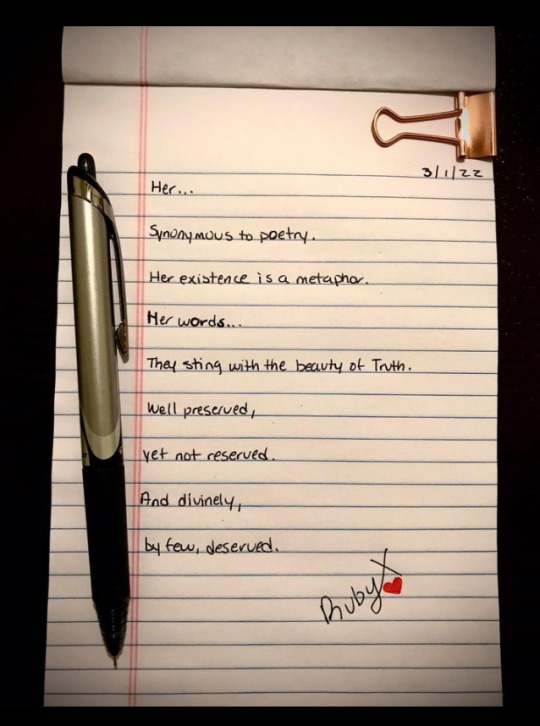 3/1/22
Her...
Synonymous to poetry.
Her existence is a metaphor.
Her words...
They sting with the beauty of Truth.
Well preserved,
yet not reserved.
And divinely,
by few, deserved.
RubyX